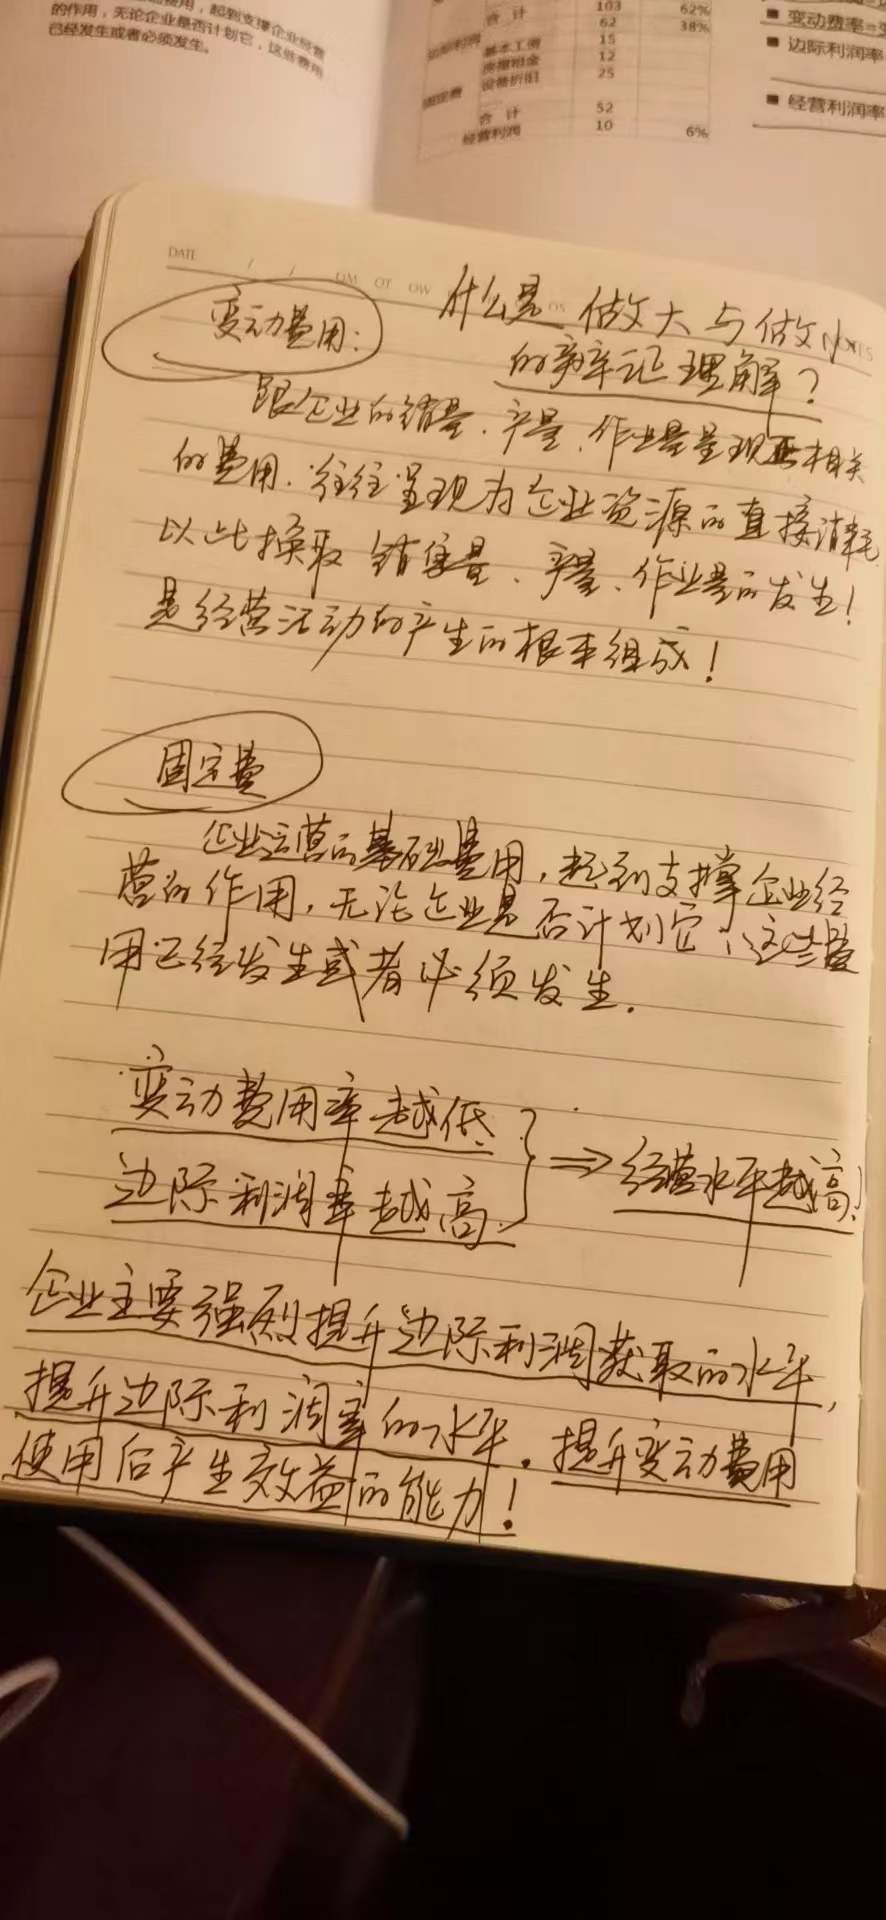 费用，起到支撑企业经营
的作用，无论企业是否计划它，这些费用
已经发生或者必须发生。
合 计 103 62%
边际利润 62 38%
基本工资 15
房屋租金 12
设备折旧 25
固定费
合 计 52
经营利润 10 6%
■ 变动费率=
■ 边际利润率
■ 经营利润率
DATE / /
NOTES
什么是 做大与做小
变动费用：
的辩证理解？
跟企业的销量、产量、作业量呈现正相关
的费用．往往呈现为企业资源的直接消耗
以此换取 销售量、产量、作业量的发生！
是经营活动的产生的根本组成！
固定费
企业运营的基础费用，起到支撑企业经
营的作用，无论企业是否计划它，这些费
用已经发生或者必须发生．
变动费用率越低
边际利润率越高
} ⇒ 经营水平越高！
企业主要强烈提升边际利润获取的水平，
提升边际利润率的水平．提升变动费用
使用后产生效益的能力！